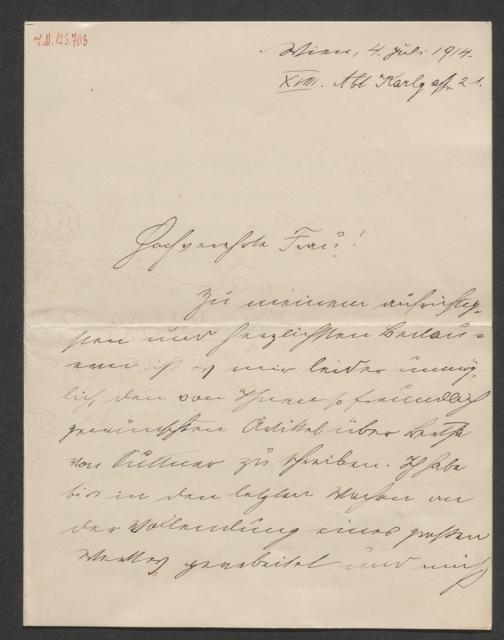 I.N. 123.703
Wien, 4. Juli 1914.
XVIII. Abt Karlgasse 21.
Hochverehrte Frau!
Zu meinem aufrichtig-
sten und herzlichsten Bedau-
ern ist es mir leider unmög-
lich, den von Ihnen so freundlich
gewünschten Artikel über Bertha
von Suttner zu schreiben. Ich habe
bis in den letzten Wochen an
der Vollendung eines großen
Werkes gearbeitet und muß